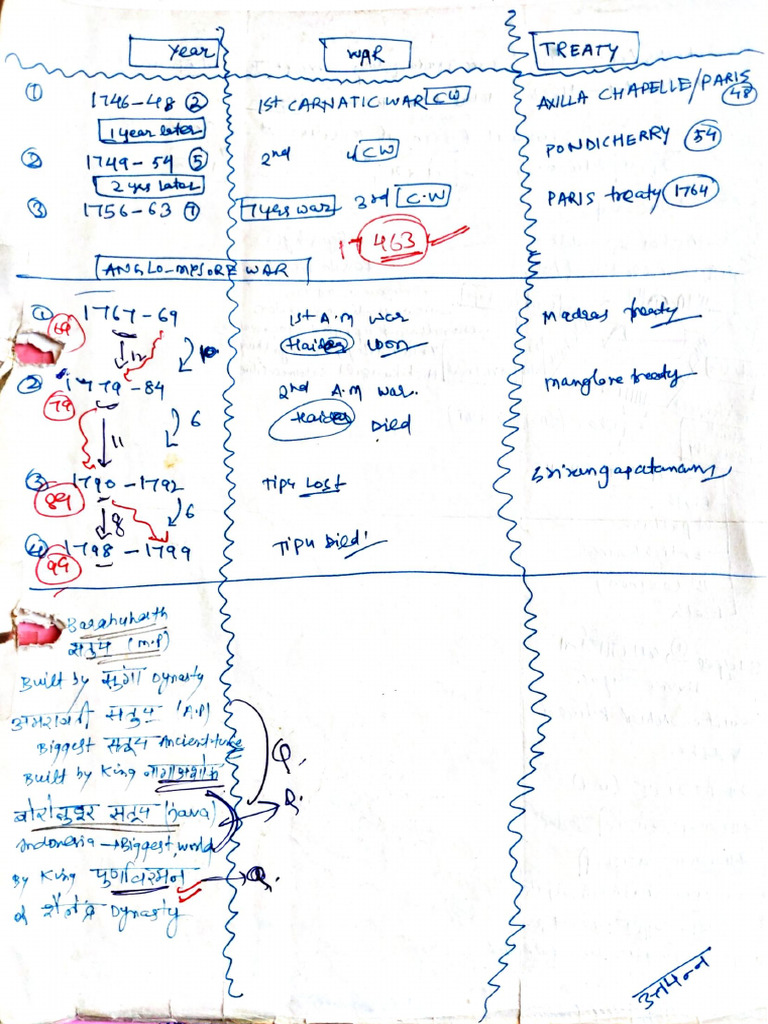 Year WAR TREATY
① 1746-48 ② 1st CARNATIC WAR CW AXILLA CHAPELLE/PARIS 48
1 year later
② 1749-54 ⑤ 2nd " CW PONDICHERRY 54
2 yrs later
③ 1756-63 ⑦ 7 yers war 3rd C.W PARIS treaty 1764
17 463
ANGLO-MYSORE WAR
① 1767-69 1st A.M war Madras treaty
69 Haider won
12 10
② 1779-84 2nd A.M war. Manglore treaty
79 Haider Died
11 6
③ 1790-1792 Tipu Lost Srirangapatanam
89
8 6
④ 1798-1799 Tipu Died!
99
(M.P)
Built by सुंगा Dynasty
अमरावती स्तूप (A.P)
Biggest स्तूप Ancient time
Built by King Q.
बोरोबुदुर स्तूप (Java) Q.
Indonesia → Biggest world
by King पुर्णवर्मन Q.
Dynasty